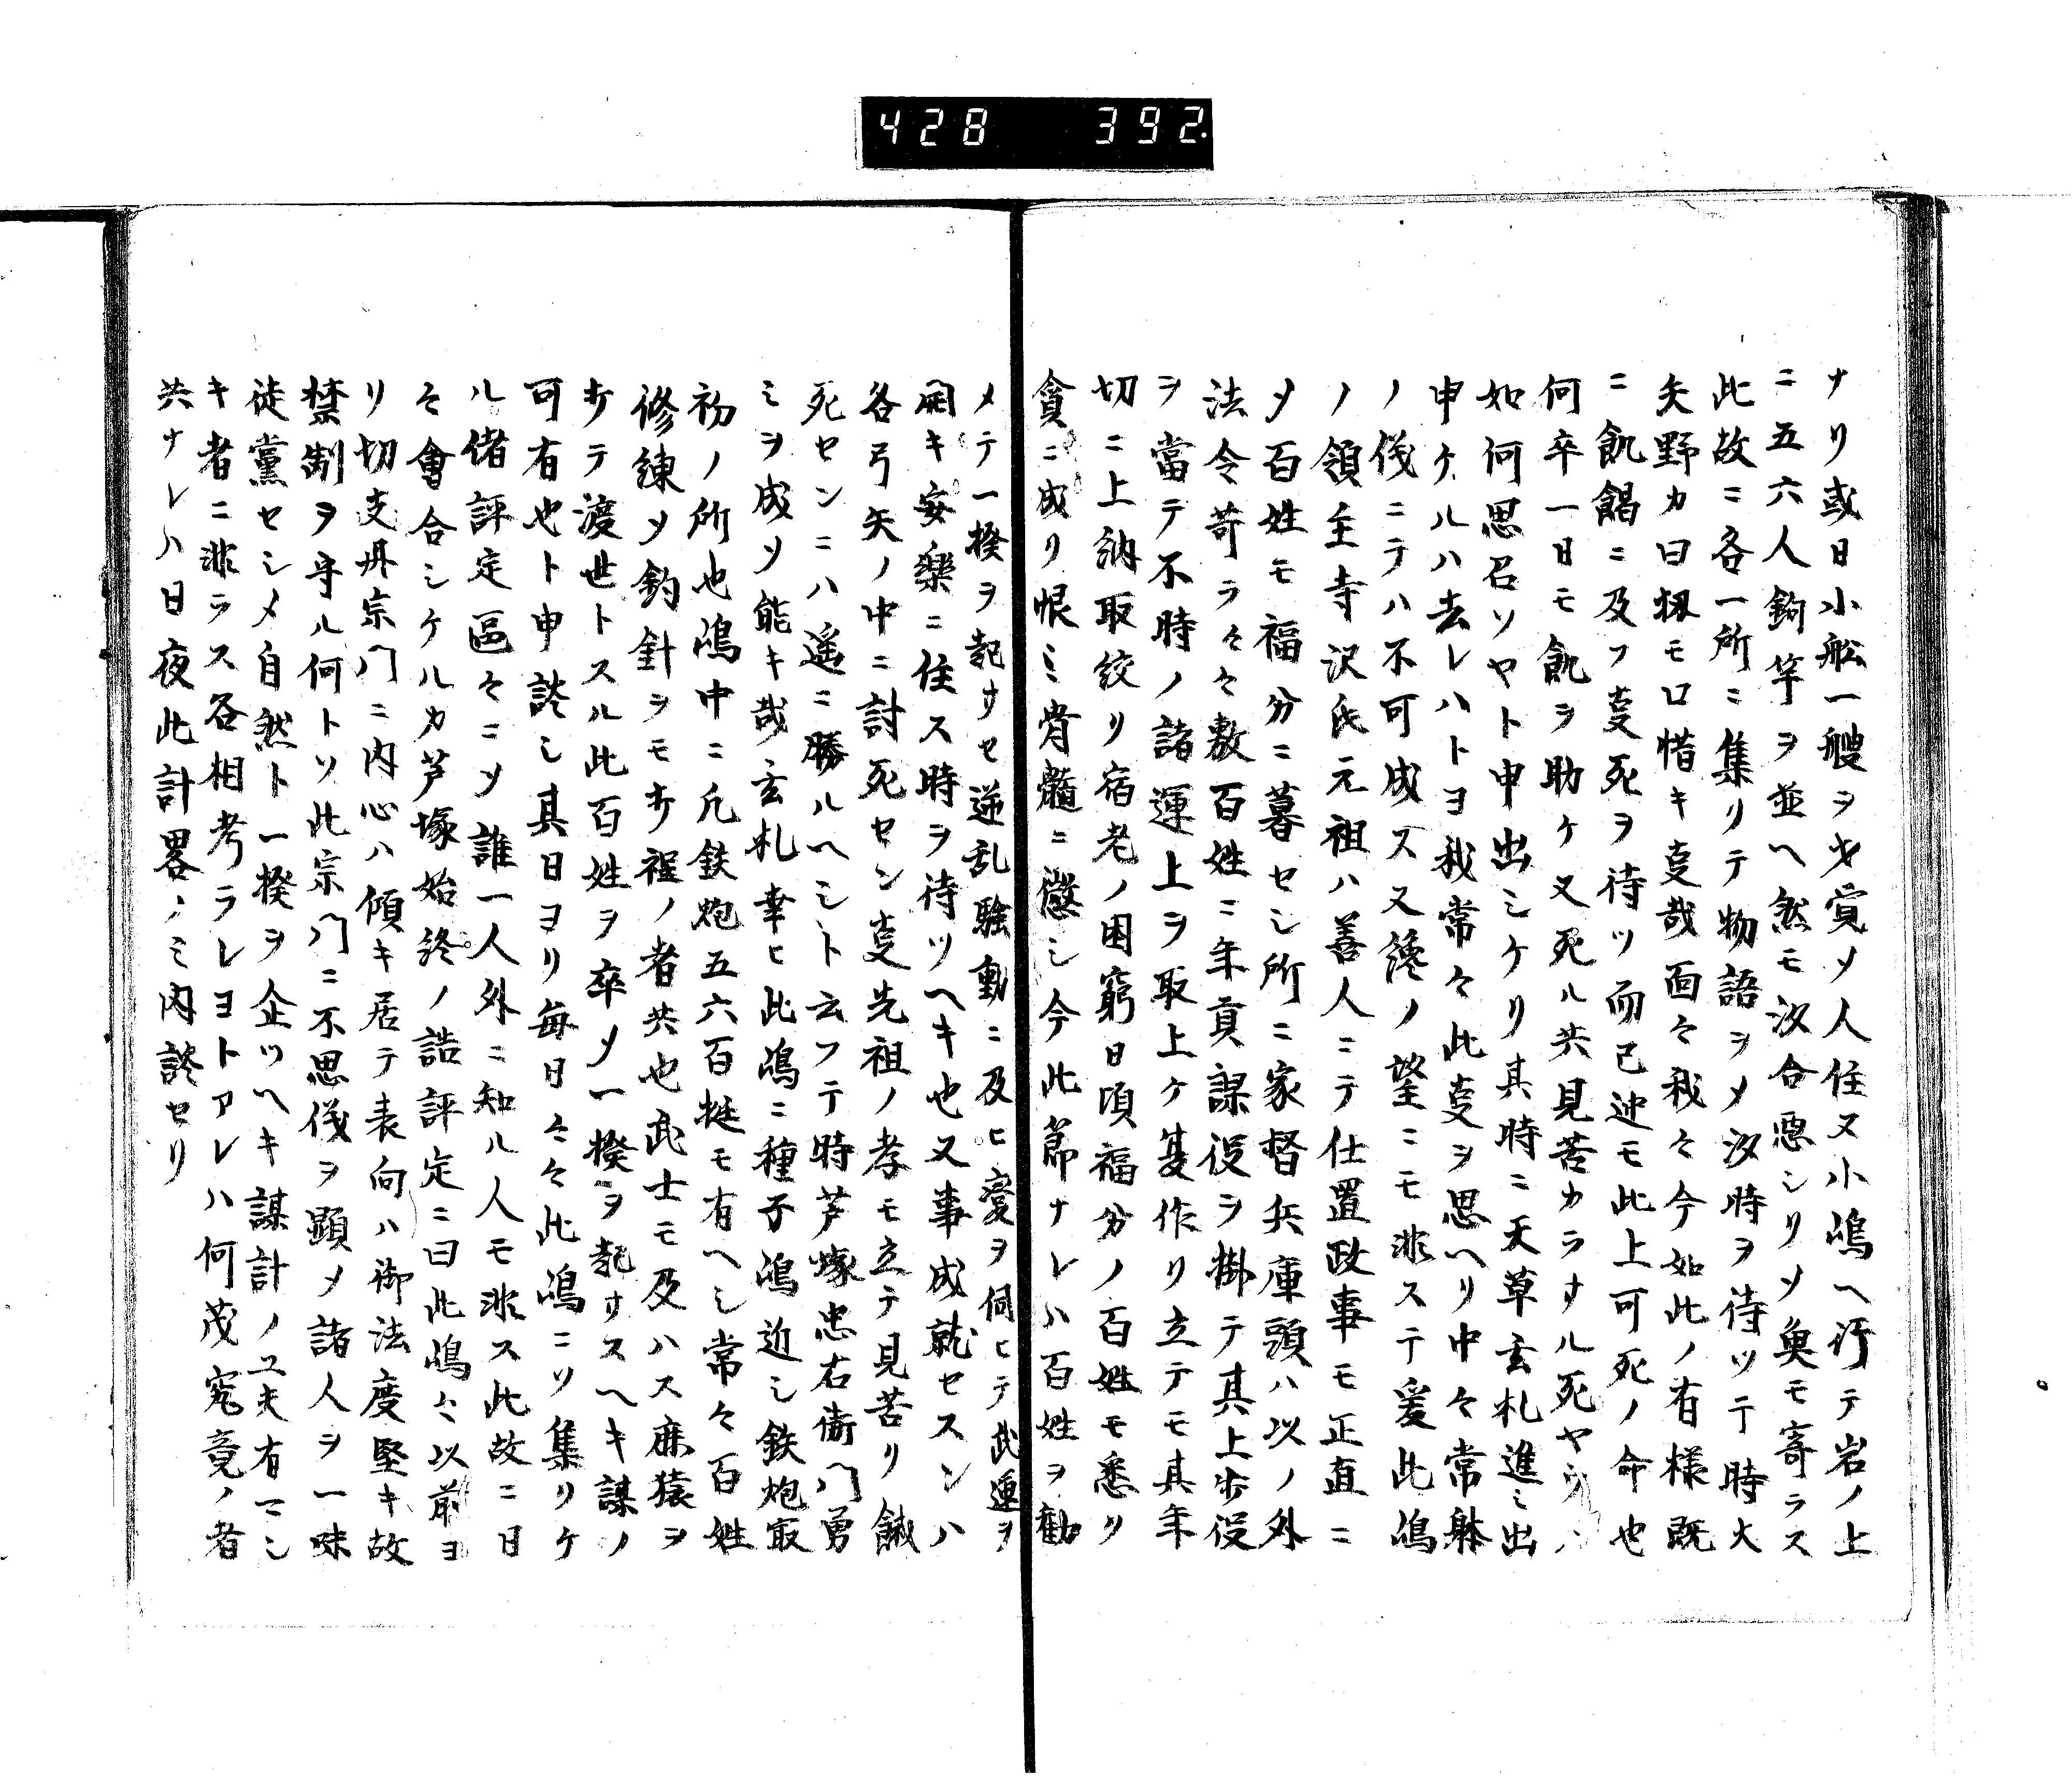 428 392.
ナリ或日小舩一艘ヲ才覚ソ人住又小嶋ヘ行テ岩ノ上
ニ五六人鉤竿ヲ並ヘ然モ汐合悪シリソ魚モ寄ラス
此故ニ各一所ニ集リテ物語ヲメ汐時ヲ待ツテ時大
矢野カ曰扨モ口惜キ叓哉面々我々今如此ノ有様既
ニ飢餲ニ及フ叓死ヲ待ツ而已迚モ此上可死ノ命也
何卒一日モ飢ヲ助ケ又死ル共見苦カラサル死ヤウハ
如何思召ソヤト申出シケリ其時ニ天草玄札進ミ出
申ケルハ去レハトヨ我常々此叓ヲ思ヘリ中々常躰
ノ儀ニテハ不可成ス又纔ノ望ニモ非ステ爰此嶋
ノ領主寺沢氏元祖ハ善人ニテ仕置政事モ正直ニ
メ百姓モ福分ニ暮セシ所ニ家督兵庫頭ハ以ノ外
法令苛ラ々々敷百姓ニ年貢課役ヲ掛テ其上歩役
ヲ當テ不時ノ諸運上ヲ取上ケ耕作リ立テモ其年
切ニ上納取絞リ宿老ノ困窮日頃福分ノ百姓モ悉リ
貧ニ成リ恨ミ骨髓ニ懲シ今此節ナレハ百姓ヲ勧
メテ一揆ヲ起サセ逆乱騒動ニ及ヒ変ヲ伺ヒテ武運ヲ
開キ安樂ニ住ス時ヲ待ツヘキ也又事成就セスンハ
各弓矢ノ中ニ討死セン叓先祖ノ孝モ立テ見苦リ餓
死センニハ遥ニ勝ルヘシト云フテ時芦塚忠右衛門勇
ミヲ成ソ能キ哉玄札幸ヒ此嶋ニ種子嶋近シ鉄炮取
初ノ所也嶋中ニ凢鉄炮五六百挺モ有ヘシ常々百姓
修練メ釣針ヲモ打程ノ者共也武士モ及ハス麻猿ヲ
打テ渡世トスル此百姓ヲ卒メ一揆ヲ起サスヘキ謀ノ
可有也ト申談シ其日ヨリ毎日々々此嶋ニソ集リケ
ル偖評定區々ニソ誰一人外ニ知ル人モ非ス此故ニ日
々會合シケルカ芦塚始終ノ詰評定ニ曰此嶋々以前ヨ
リ切支丹宗門ニ内心ハ傾キ居テ表向ハ御法度堅キ故
禁制ヲ守ル何トソ此宗門ニ不思儀ヲ顕メ諸人ヲ一味
徒黨セシメ自然ト一揆ヲ企ツヘキ謀計ノ工夫有マシ
キ者ニ非ラス各相考ラレヨトアレハ何茂寃竟ノ者
共ナレハ日夜此計畧ノミ内談セリ